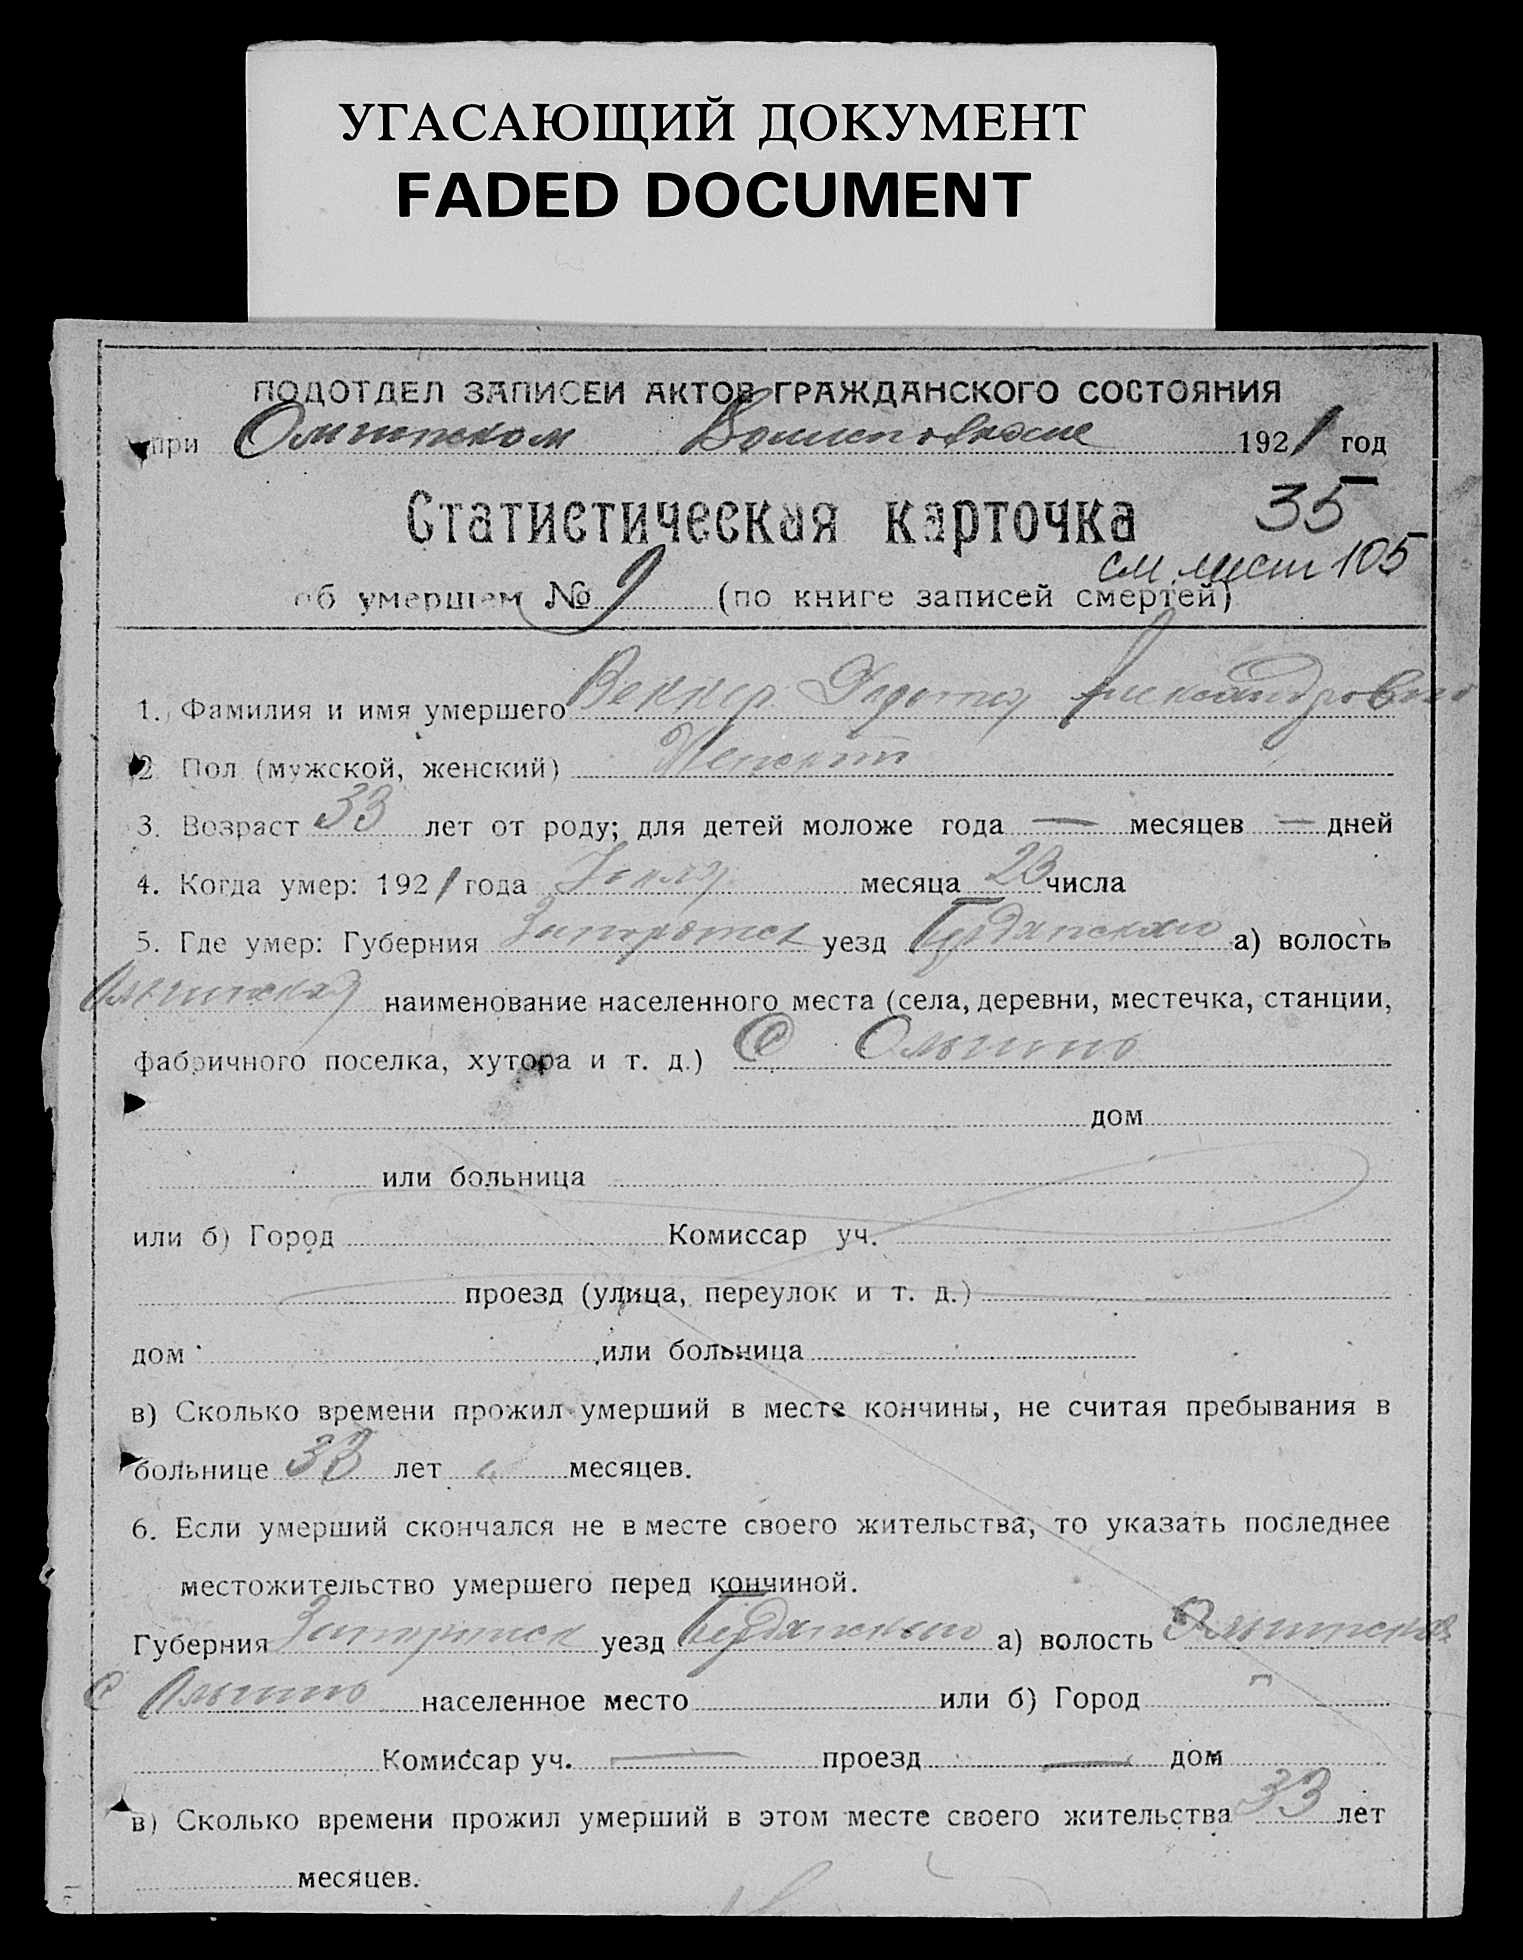 УГАСАЮЩИЙ ДОКУМЕНТ
FADED DOCUMENT
ПОДОТДЕЛ ЗАПИСЕЙ АКТОВ ГРАЖДАНСКОГО СОСТОЯНИЯ
при Ольгинском 1921 год
Статистическая карточка 35
см. лист 105
об умершем № 9 (по книге записей смертей)
1. Фамилия и имя умершего Веккер Александровна
2 Пол (мужской, женский) Женский
3. Возраст 33 лет от роду; для детей моложе года — месяцев — дней
4. Когда умер: 1921 года месяца 23 числа
5. Где умер: Губерния Запорожск уезд Бердянский а) волость
Ольгинская наименование населенного места (села, деревни, местечка, станции,
фабричного поселка, хутора и т. д.) С Ольгино
дом
или больница
или б) Город Комиссар уч.
проезд (улица, переулок и т. д.)
дом или больница
в) Сколько времени прожил умерший в месте кончины, не считая пребывания в
больнице 33 лет месяцев.
6. Если умерший скончался не в месте своего жительства, то указать последнее
местожительство умершего перед кончиной.
Губерния Запорожск уезд Бердянский а) волость Ольгинская
С Ольгино населенное место или б) Город
Комиссар уч. — проезд — дом
в) Сколько времени прожил умерший в этом месте своего жительства 33 лет
месяцев.